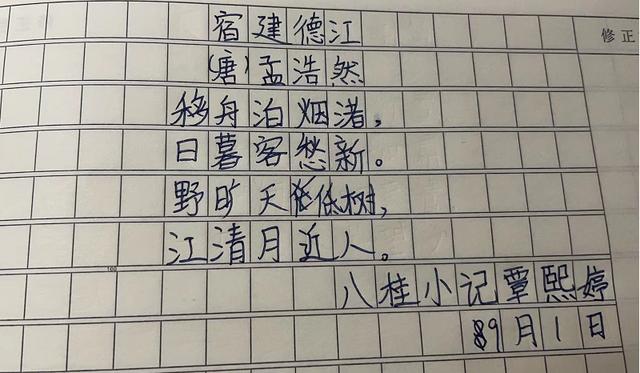 修正
宿建德江
(唐)孟浩然
移舟泊烟渚，
日暮客愁新。
野旷天低树，
江清月近人。
八桂小记覃熙婷
9月1日
100